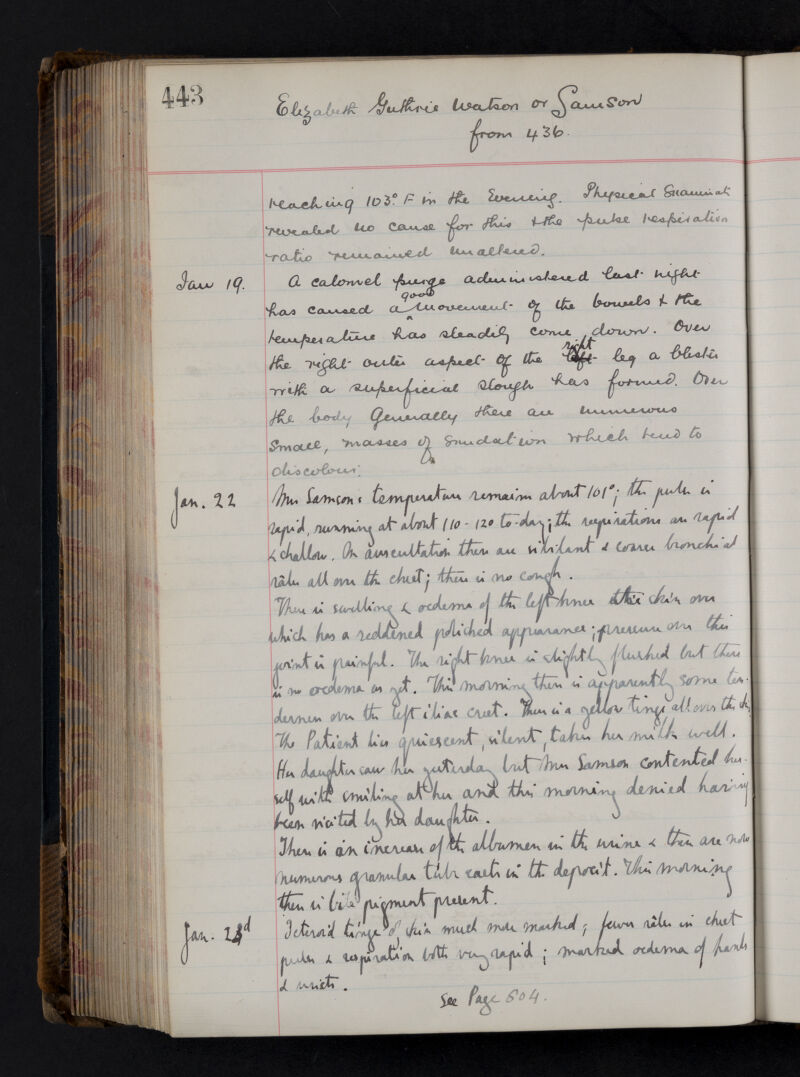 443
Elizabeth Guthrie Watson or Samson
from 436.
reaching 103°. F in the Evening. Physical Examinat
revealed no cause for this & the pulse respiration
ratio remained unaltered.
Jan 19. A calomel purge administered last night
has caused a good movement of the bowels & the
temperature has steadily come down. Over
the right outer aspect of the left right leg a blister
with a superficial slough has formed. Over
the body Generally there are numerous
small, masses of Exudation which tend to
discolour.
Jan. 22 Mrs Samson's temperature remains about 101°; the pulse is
rapid, running at about 110-120 to-day; the respirations are rapid
& shallow. On auscultation there are sibilant & coarse bronchial
râles all over the chest; there is no cough.
There is swelling & oedema of the left knee the skin over
which has a reddened polished appearance; pressure over this
joint is painful. The right knee is slightly flushed but there
is no oedema as yet. This morning there is apparently some ten-
derness over the left iliac crest. There is a yellow tinge all over the skin,
The Patient lies quiescent, silent, takes her milk well.
Her daughter saw her yesterday but Mrs Samson contented her-
self with smiling at her and this morning denied having
been visited by her daughter.
There is an increase of the albumen in the urine & there are now
numerous granular tube casts in the deposit. This morning
there is bile pigment present.
Jan. 23d Icteroid tinge of skin much more marked; fewer râles in chest
pulse & respiration both very rapid; marked oedema of hands
& wrists.
See Page 504.